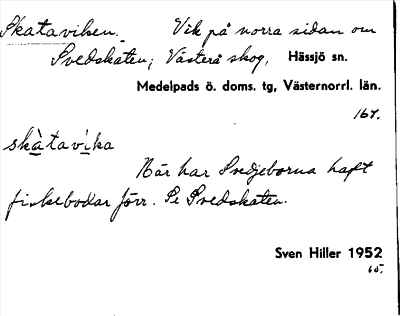 Skataviken. Vik på norra sidan om
Svedskaten, Västerå skog, Hässjö sn.
Medelpads ö. doms. tg, Västernorrl. län.
167.
skàtav`ika
Här har Svedjeborna haft
fiskebodar förr. Se Svedskaten.
Sven Hiller 1952
65.